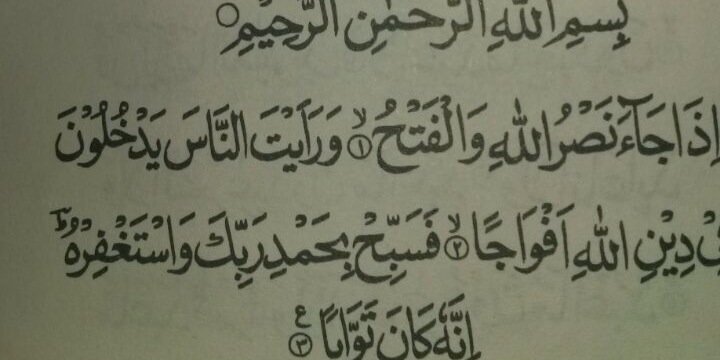 بِسْمِ اللّٰهِ الرَّحْمٰنِ الرَّحِيْمِ
اِذَا جَآءَ نَصْرُ اللّٰهِ وَالْفَتْحُ ۙ﴿۱﴾ وَرَاَيْتَ النَّاسَ يَدْخُلُوْنَ
فِيْ دِيْنِ اللّٰهِ اَفْوَاجًا ۙ﴿۲﴾ فَسَبِّحْ بِحَمْدِ رَبِّكَ وَاسْتَغْفِرْهُ ؕ
اِنَّهٗ كَانَ تَوَّابًا ﴿۳﴾ ع